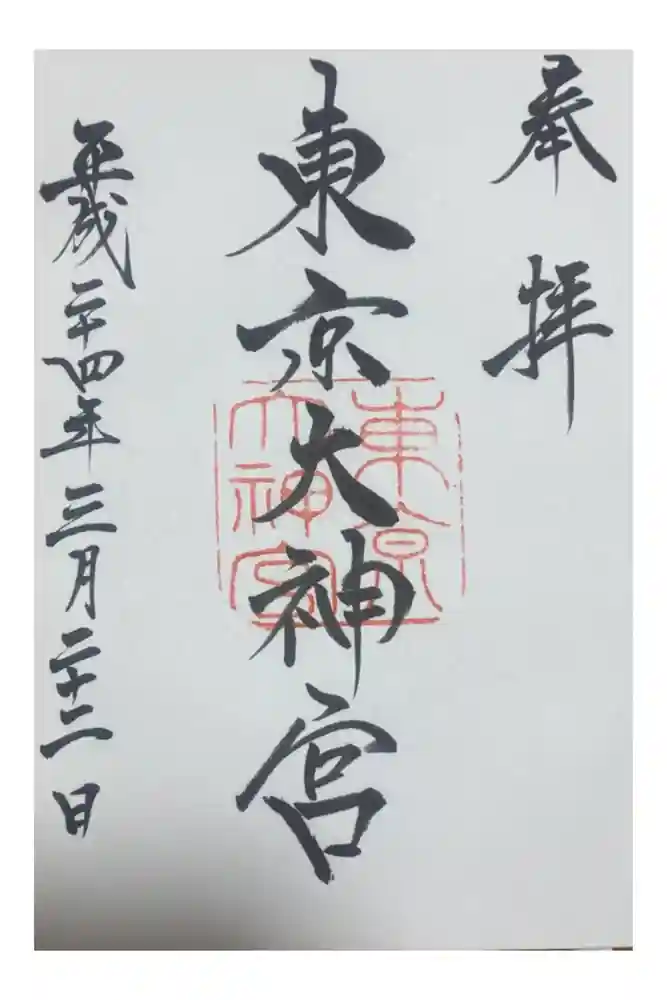 奉拝
東京大神宮
東京
大神宮
平成二十四年三月二十二日